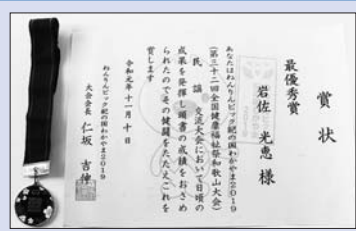 賞状
最優秀賞
岩佐 光恵 様
あなたはねんりんピック紀の国わかやま2019
(第三十二回全国健康福祉祭和歌山大会)
民謡交流大会において日頃の
成果を発揮し頭書の成績をおさめ
られたのでその健闘をたたえこれを
賞します
令和元年十一月十日
ねんりんピック紀の国わかやま2019
大会会長 仁坂 吉伸